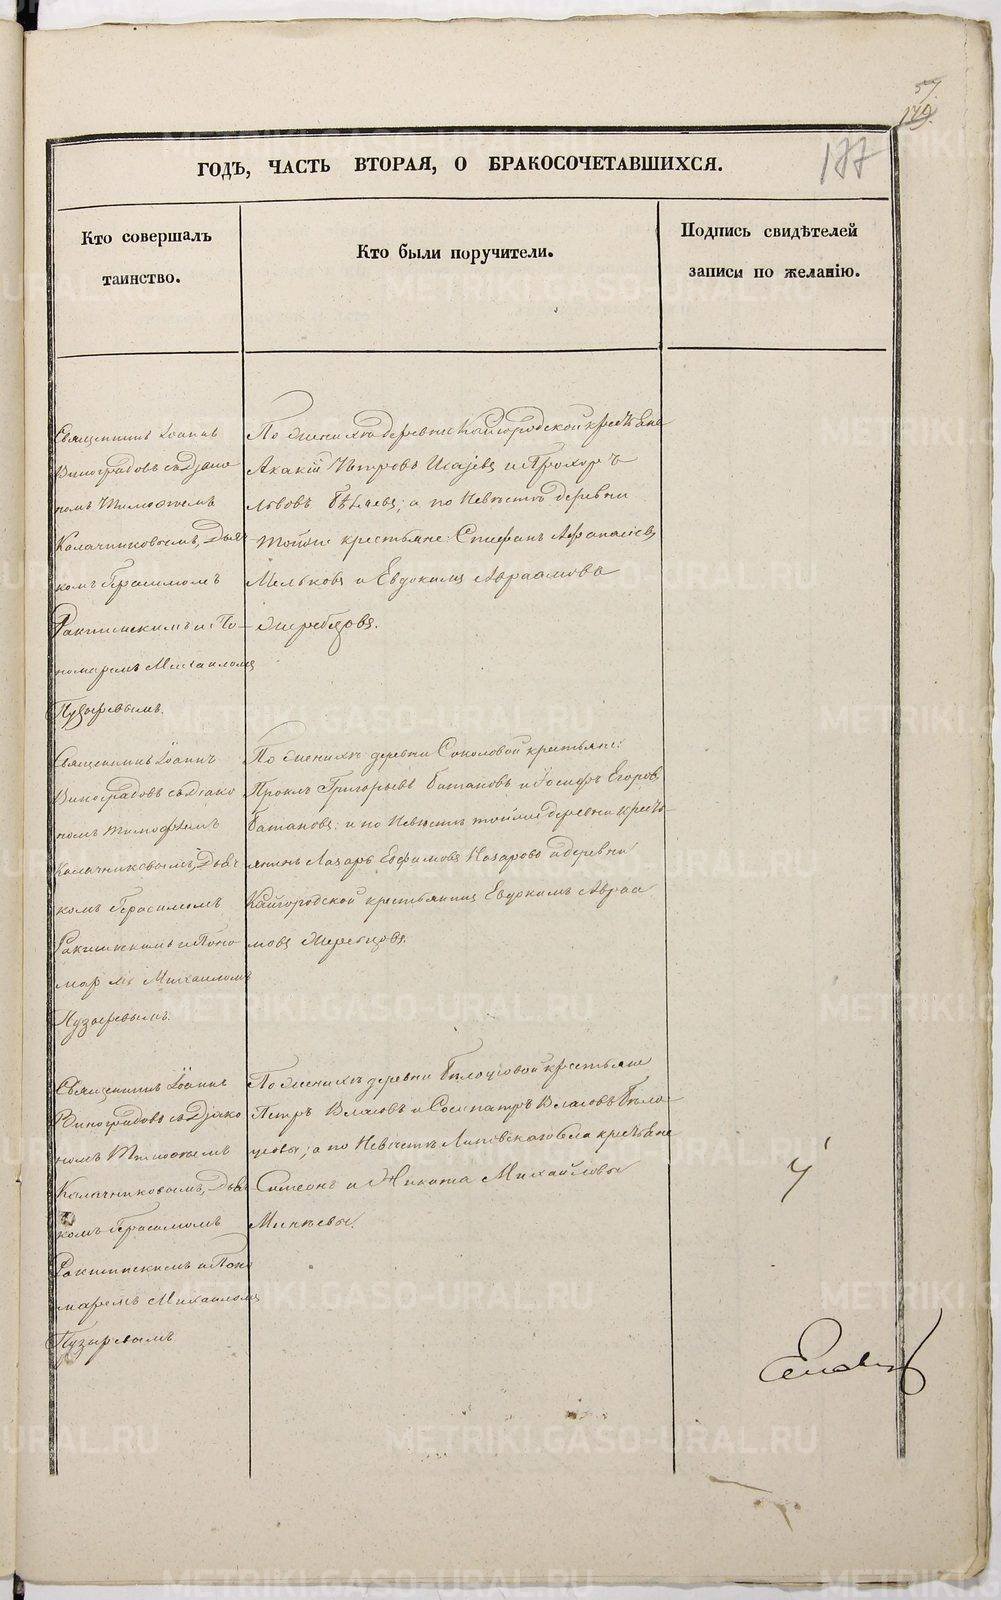 57.
179.
177
ГОДЪ, ЧАСТЬ ВТОРАЯ, О БРАКОСОЧЕТАВШИХСЯ.
Кто совершалъ
таинство.
Кто были поручители.
Подпись свидѣтелей
записи по желанію.
Священникъ Іоаннъ
Виноградовъ съ Діако
номъ Тимофеемъ
Калачниковымъ, Дьяч
комъ Герасимомъ
Ракшинскимъ и По-
номаремъ Михаиломъ
Пузыревымъ.
По женихѣ деревни Кайгородской крестьяне
Акакій Петровъ Исаевъ и Прохоръ
Львовъ Бѣляевъ; а по Невѣстѣ деревни
тойже крестьяне: Стефанъ Афанасіевъ
Мельковъ и Евдокимъ Авраамовъ
Жеребцовъ.
Священникъ Іоаннъ
Виноградовъ съ Діако
номъ Тимофѣемъ
Калачниковымъ, Дьяч
комъ Герасимомъ
Ракшинскимъ и Поно
маремъ Михаиломъ
Пузыревымъ.
По женихѣ деревни Соколовой крестьяне:
Проклъ Григорьевъ Батановъ и Іосифъ Егоровъ
Батановъ; и по Невѣстѣ тойже деревни кресть
янинъ Лазарь Ефимовъ Назаровъ и деревни
Кайгородской крестьянинъ Евдокимъ Авраа
мовъ Жеребцовъ.
Священникъ Іоаннъ
Виноградовъ съ Діако
номъ Тимофеемъ
Калачниковымъ, Дьяч
комъ Герасимомъ
Ракшинскимъ и Поно
маремъ Михаиломъ
Пузыревымъ
По женихѣ деревни Бѣлоусовой крестьяне
Петръ Власовъ и Сосипатръ Власовъ Бѣло-
усовы; а по Невѣстѣ Липовскаго села крестьяне
Симеонъ и Никита Михайловы
Минѣевы.